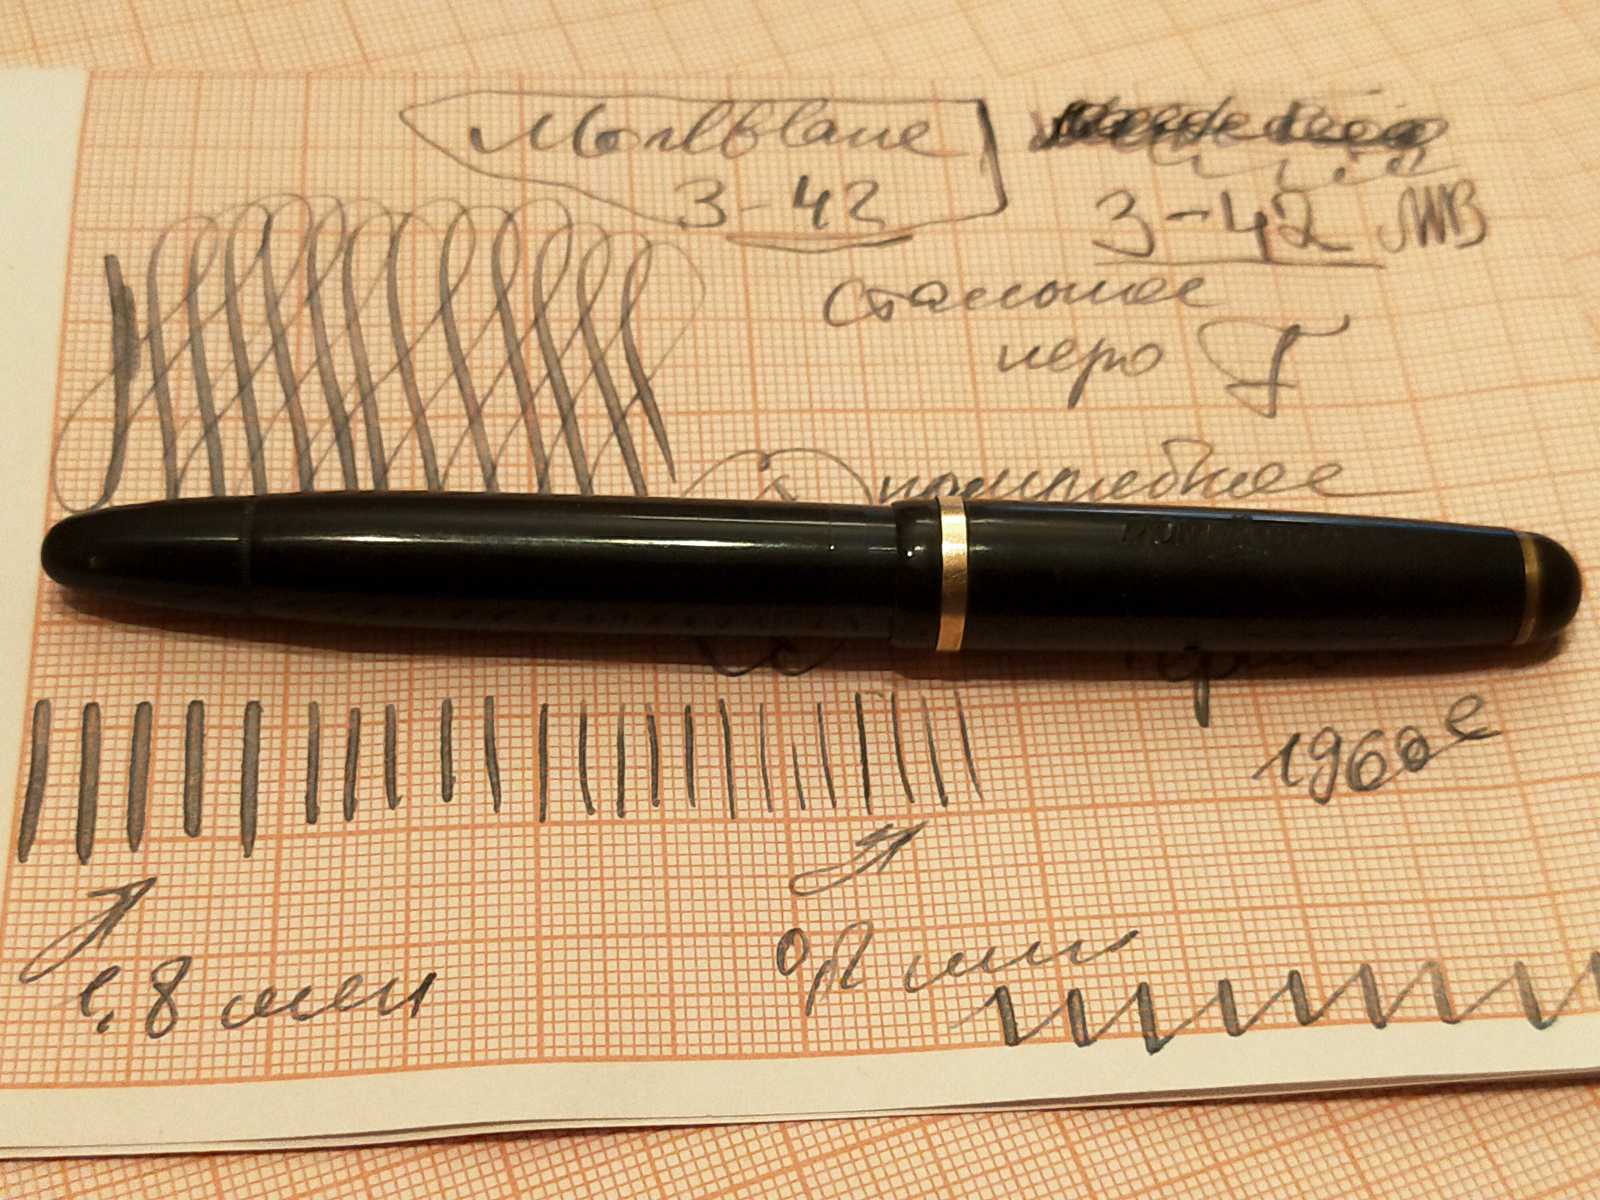 Montblanc
3-42
3-42 MB
стальное
перо F
1960е
1,8 мм
0,2 мм